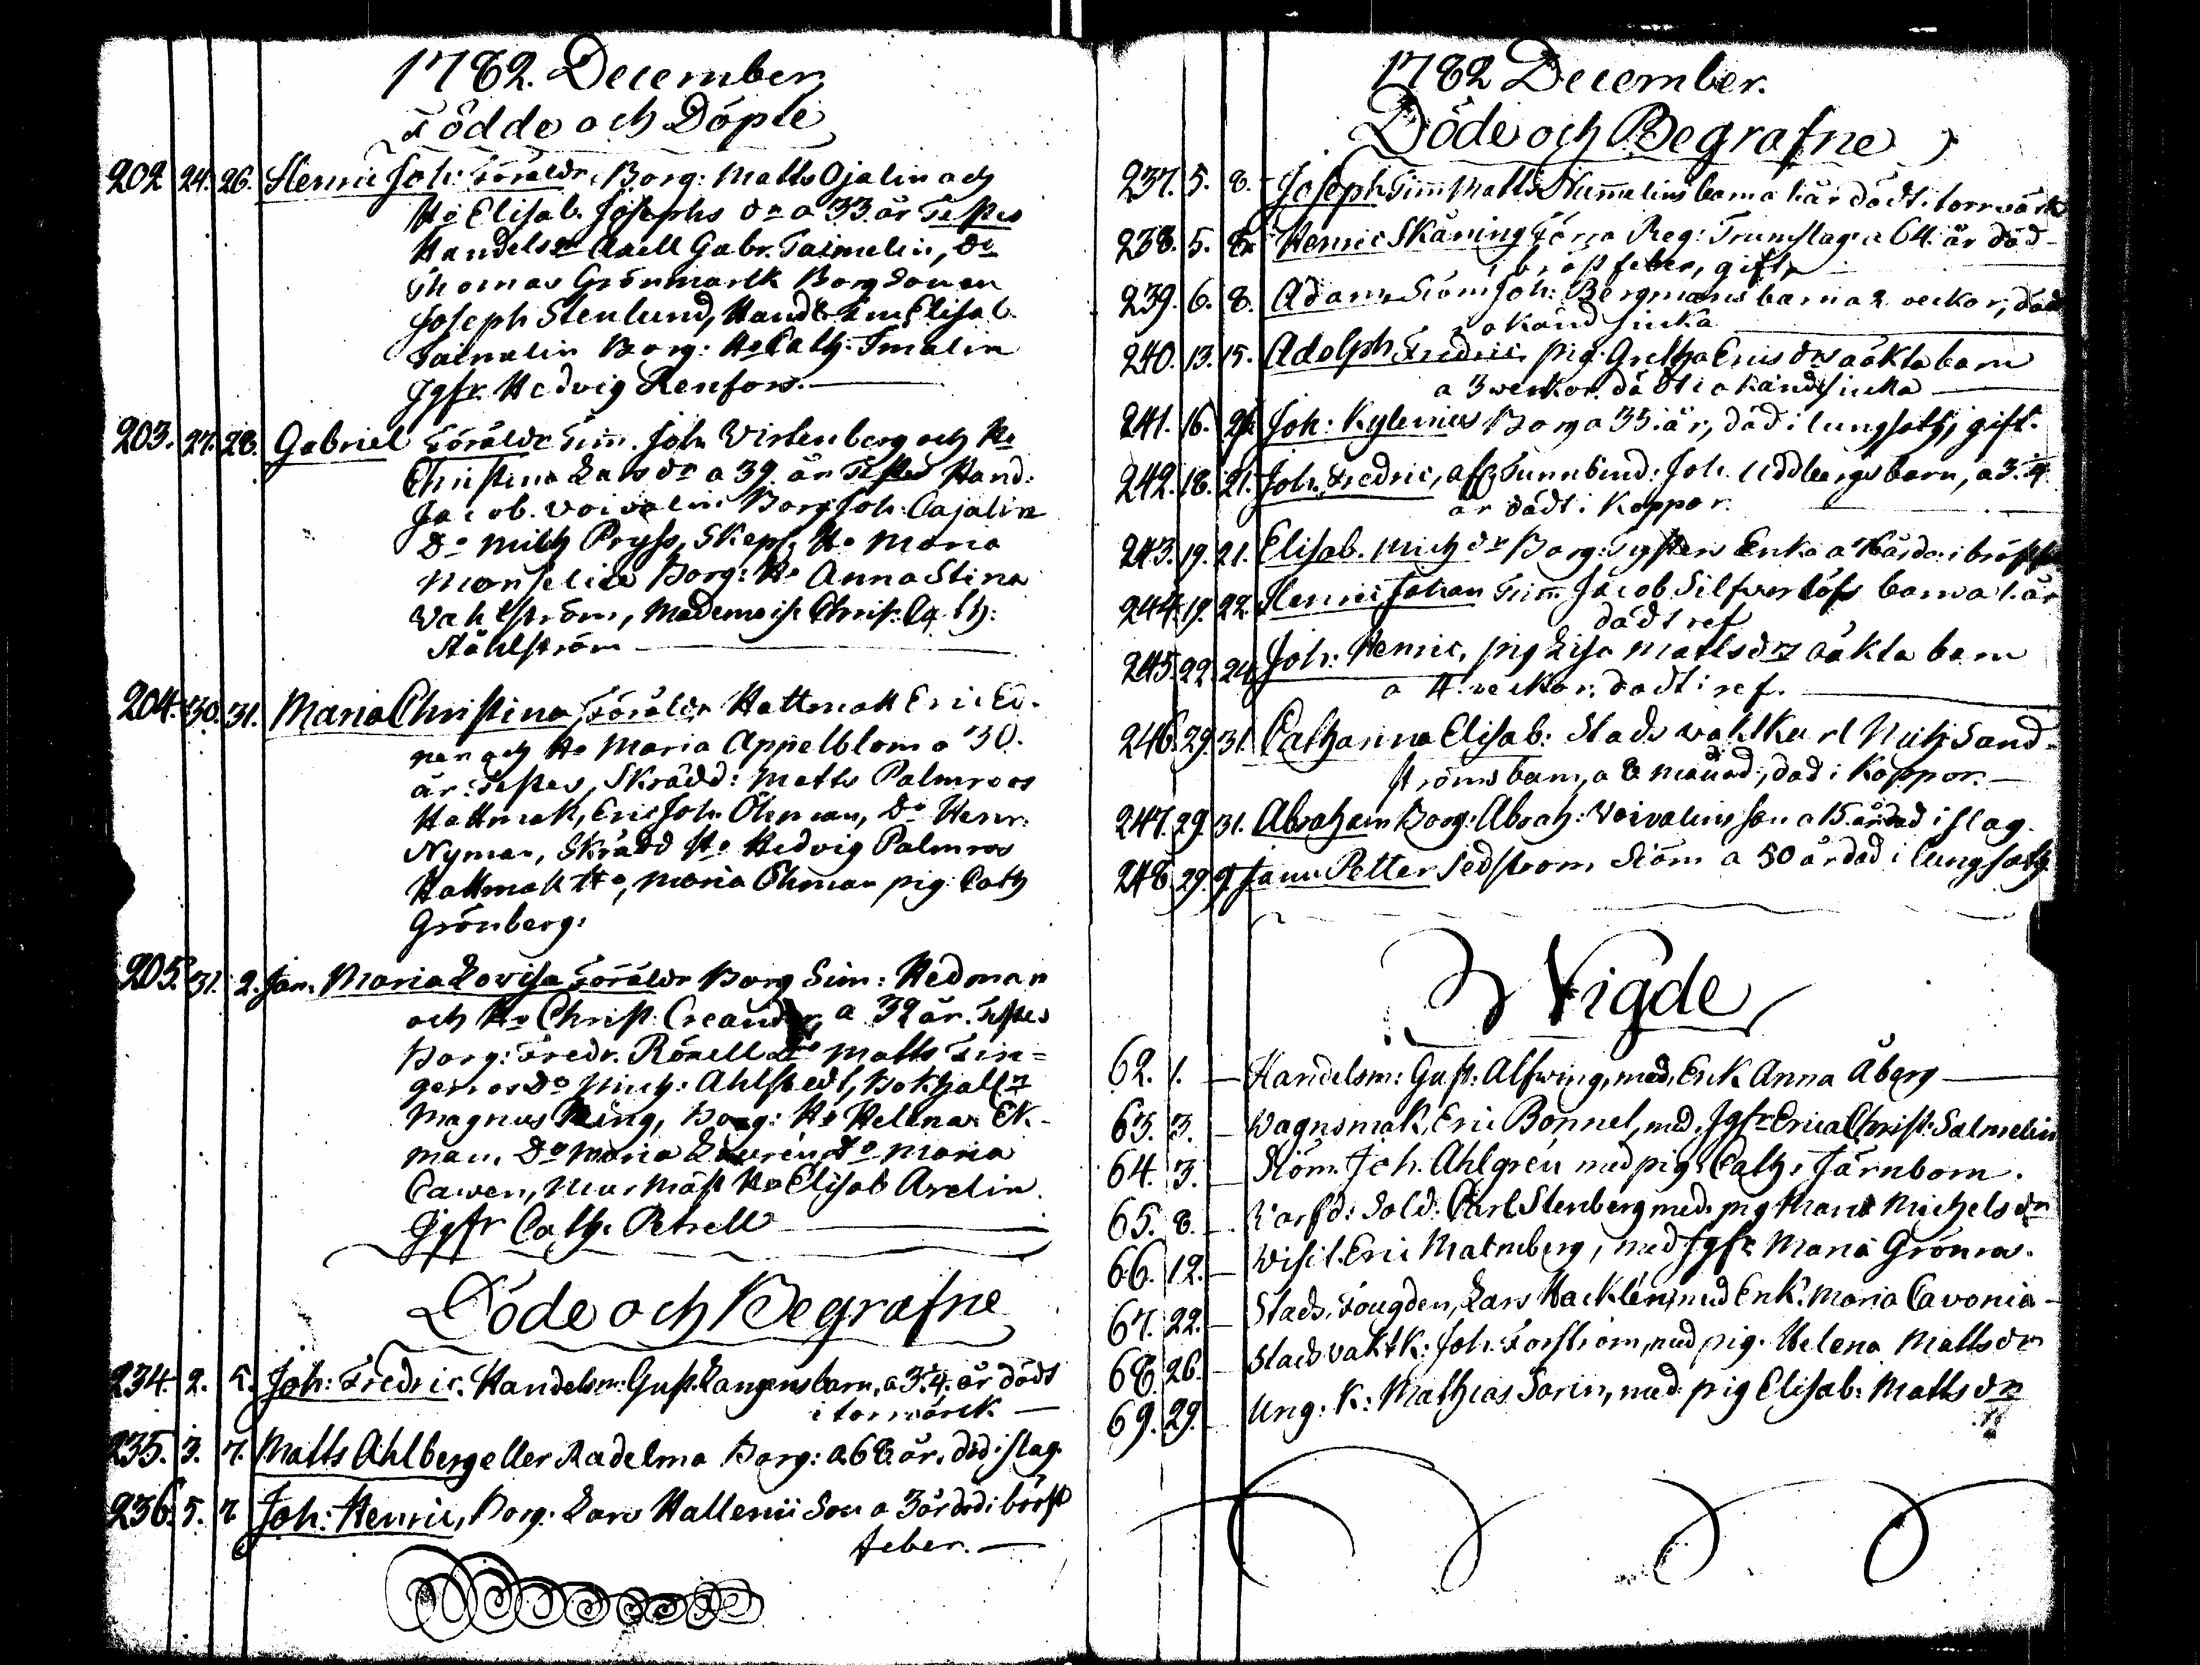 1782. December
Födde och Döpte
202 24. 26. Henric Joh: Föräldr. Borg: Matts Ojalin och
H:o Elisab. Josephs d:r a 33 år Testes
Handelsm Axell Gabr. Taimelin, D:o
Thomas Grönmarck Borg Sonen
Joseph Stenlund, Hand: Elisab.
Taimelin Borg: H:o Cath: Tmalin
Jgfr. Hedvig Renfors.
203. 27. 28. Gabriel Föräldr Tim. Joh Wirtenberg och H:o
Christina Lars d:r a 39. år Testes Hand:
Jacob. Voivalin Borg Joh: Cajalin
D:o Mich Pryss, Skepp, H:o Maria
Monselius Borg: H:o Anna Stina
Wahlström, Mademois: Christ: Cath:
Ståhlström
204. 30. 31. Maria Christina, Föräldr Hattmak Eric Ed-
ner och H:o Maria Appelblom a 30.
år: Testes, Skrädd: Matts Palmroos
Hattmak, Eric Joh. Öhman, D:o Henr:
Nyman, Skrädd H:o Hedvig Palmros
Hattmak H:o, Maria Öhman pig: Cath
Grönberg:
205. 31. 2. Jan. Maria Lovisa Föräldr Borg Sim: Hedman
och H:o Christ: Creander, a 32 år. Testes
Borg: Fredr. Rönell D:o Matts Fin=
geroos D:o Mich: Ahlstedt, Bokhåll:r
Magnus Ring, Borg: H:o Hellena Ek-
man, D:o Maria Laurén, D:o Maria
Cawen, Mur Mäst H:o Elisab Arelin.
Jgfr Cath. Petrell
Döde och Begrafne
234. 2. 5. Joh: Fredric. Handelsm: Gust. Langens barn, a 3/4. år dödt
i torrvärck.
235. 3. 7. Matts Ahlberg eller Radelma Borg: a 68 år. död i slag.
236. 5. 7. Joh: Henric, Borg. Lars Hallenii Son a 3 år död i bröst
feber.
1782 December.
Döde och Begrafne
237. 5. 8. Joseph Timm Matts Nummelins barn a 1 år dödt i torrvärk
238. 5. 8. Henric Skäning Förra Reg: Trumslag: a 64. år död
i bröst feber, gift.
239. 6. 8. Adam Siöm Joh: Bergmans barn a 2 veckor, död
okänd siuka
240. 13. 15. Adolph Fredric, pig: Gretha Erics d:rs oäkta barn
a 3 weckor. dödt i okänd siuka
241. 16. 21. Joh: Kylenius Borg a 35. år, död i lungsoth, gift.
242. 18. 21. Joh. Fredric, afl. Tunnbind: Joh. Uddbergs barn, a 3/4
år dödt i Koppor.
243. 19. 21. Elisab. Mich d:r Borg: Enka a i bröst
244. 19. 22. Henric Johan Timm Jacob Silfverlöfs barn a 1. år
dödt ref
245. 22. 24. Joh: Henric, pig Lisa Matts d:rs oäkta barn
a 4. veckor, dödt i ref.
246. 29. 31. Catharina Elisab: Stads wacht Karl Mich Sand-
ströms barn, a 8 månad, död i Koppor.
247. 29. 31. Abraham Borg: Abrah: Voivalins son a 15. år död i slag.
248. 29. 9. Janu: Petter Sedström, Siöm a 50 år död i lungsoth.
Vigde
62. 1. Handelsm: Gust: Alfwing, med, Enk Anna Åberg
63. 3. Wagnsmak, Eric Bonnel, med, Jgfr Erica Christ: Salmelin
64. 3. Siöm. Joh. Ahlgrén med pig: Cath: Järnbom.
65. 8. Sold: Carl Stenberg med. pig Maria Michels d:r
66. 12. Visit. Eric Malmberg, med Jgfr Maria Grönros.
67. 22. Stads. Fougden, Lars Hacklén, med Enk: Maria Cavonia
68. 26. Stads vakt K: Joh: Forsström, med pig. Helena Matts d:r
69. 29. Ung: K: Mathias Sorin, med pig Elisab: Matts d:r